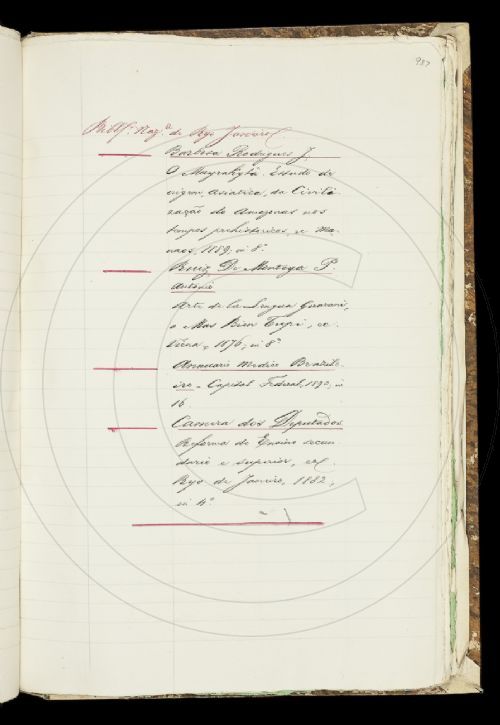 987
Barbosa Rodrigues J.
O Muyrakytã Estudo da
origem, Asiatica, da Civili-
zação do Amazonas nos
tempos prehistoricos,
1889, in 8º
Ruiz De Montoya P.
Antonio
Arte de la Lengua Guarani,
o Mas Bien Tupi,
1876, in 8º
Annuario Medico Brazilei-
ro - Capital Federal, 1892, in
16
Camera dos Deputados
Reforma do Ensino secun-
dario e superior,
Rio de Janeiro, 1882,
in 4º